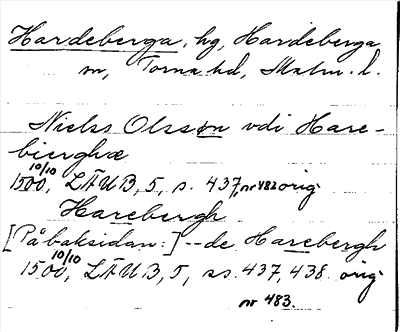 Hardeberga, hg, Hardeberga
sn, Torna hd, Malm. l.
Nielss Olssøn vdi Hare-
bierghæ
10/10
1500, LÄUB, 5, s. 437, nr 482 orig
Harebergh
[På baksidan:] -- de Harebergh
10/10
1500, LÄUB, 5, ss. 437, 438 orig
nr 483.